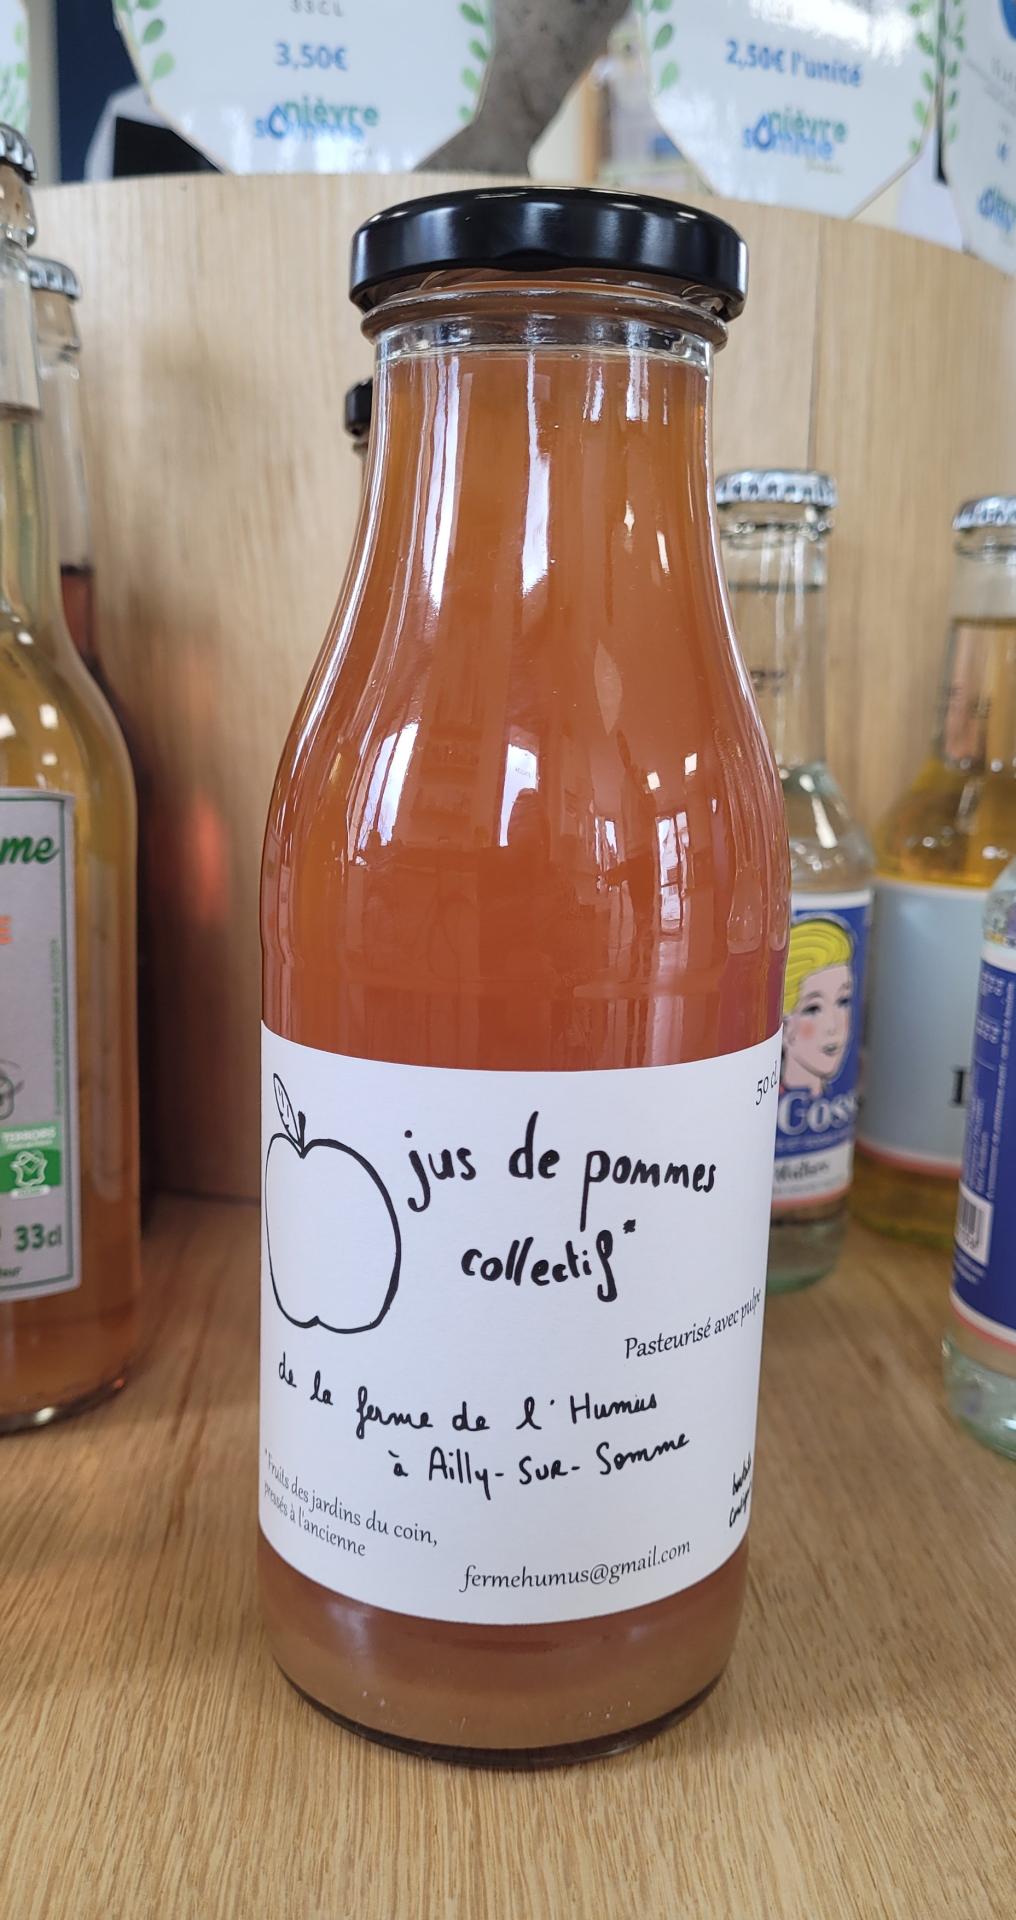 33CL
3,50€
nièvre
somme
2,50€ l'unité
nièvre
somme
me
TERROIRS
33cl
50 cl
jus de pommes
collectif*
Pasteurisé avec pulpe
de la ferme de l'Humus
à Ailly-sur-Somme
*Fruits des jardins du coin,
pressés à l'ancienne
fermehumus@gmail.com
Goss